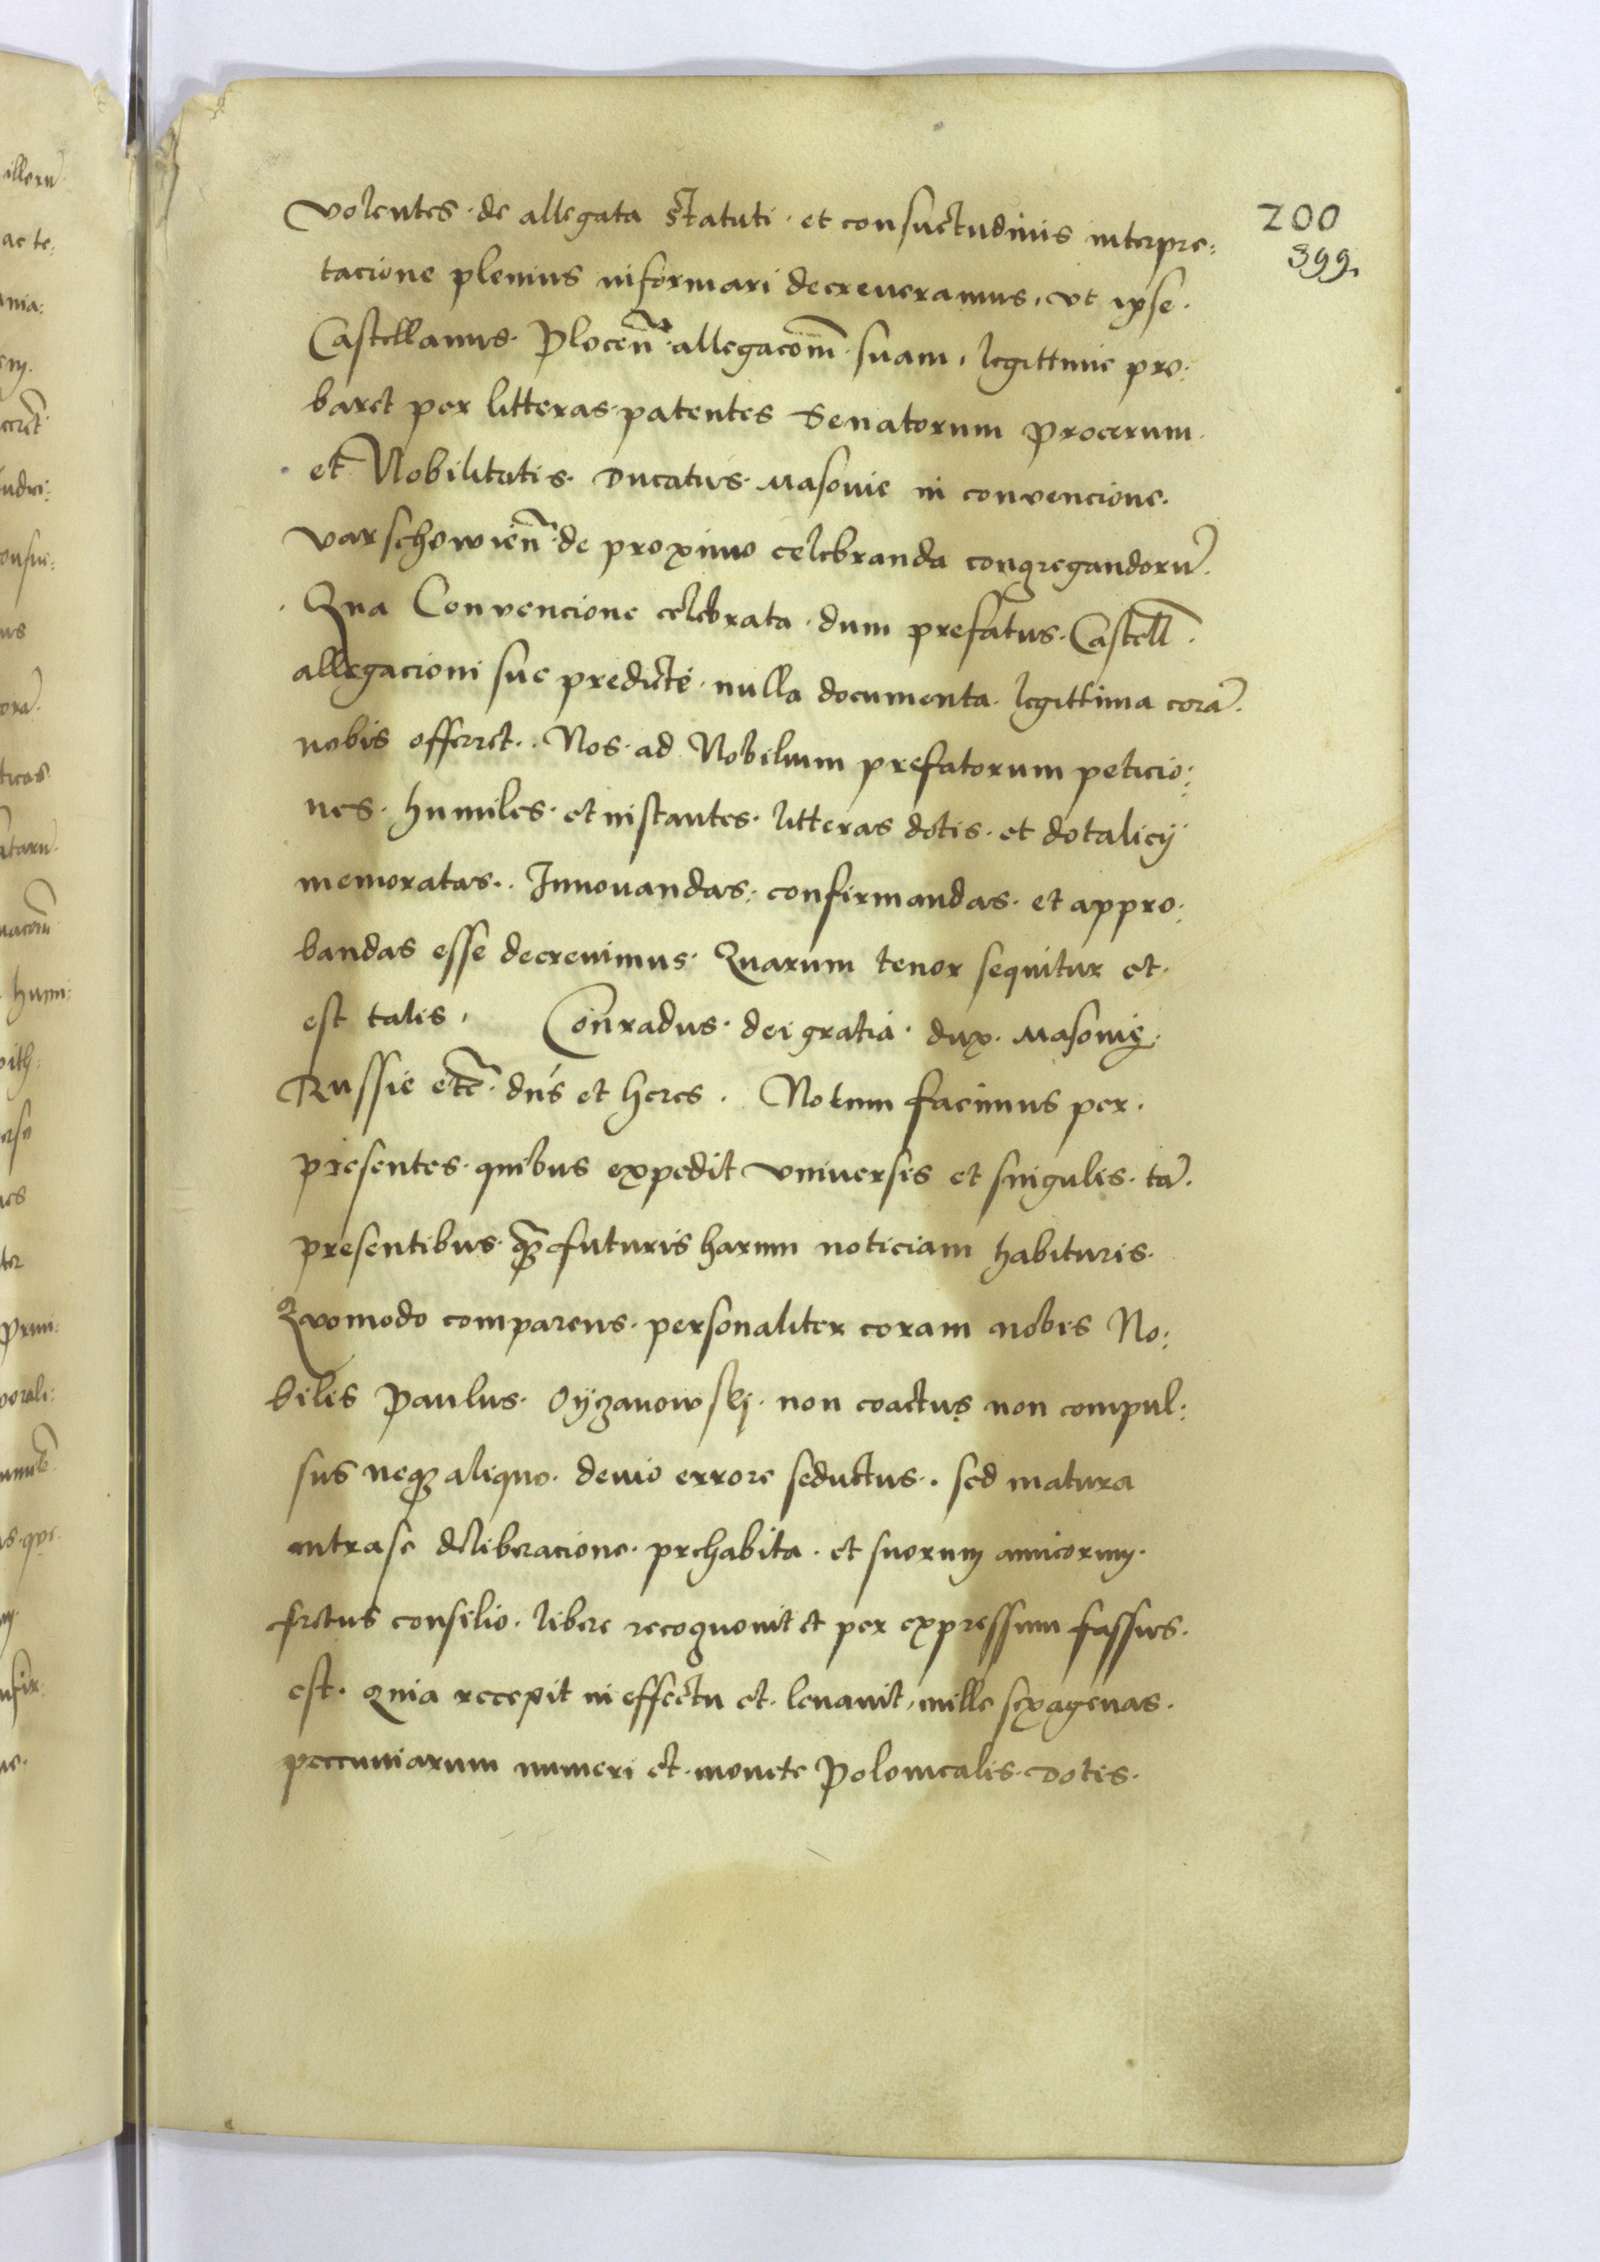 200
399.
volentes · de allegata statuti · et consuetudinis interpre:
tacione plenius informari decreveramus, ut ipse ·
Castellanus · Plocen̄ · allegacōm̄ · suam, legittime pro:
baret per litteras patentes Senatorum Procerum ·
et Nobilitatis · Ducatus · Masovie in convencione ·
varschowien̄ · de proximo celebranda congregandorū ·
Qua Convencione celebrata · dum prefatus · Castell̄ ·
allegacioni sue predicte · nulla documenta · legittima corā ·
nobis offerret · · Nos · ad Nobilium prefatorum peticio:
nes · humiles · et instantes · litteras dotis · et dotalicij
memoratas · · Innovandas: confirmandas · et appro:
bandas esse decrevimus · Quarum tenor sequitur et ·
est talis, Conradus · dei gratia · dux · Masovie ·
Russie etc̄ · dn̄s et heres · Notum facimus per ·
presentes · quibus expedit universis et singulis · tā ·
presentibus · q̄ȝ futuris harum noticiam habituris ·
Quomodo comparens · personaliter coram nobis No:
bilis Paulus · Oyzanowskj · non coactus non compul:
sus neqȝ aliquo · devio errore seductus · · sed matura
intra se deliberacione · prehabita · et suorum amicorum ·
fretus consilio · libere recognovit et per expressum fassus ·
est · quia recepit in effectu et · levavit, mille sexagenas ·
peccuniarum numeri et · monete Polonicalis · Dotis ·